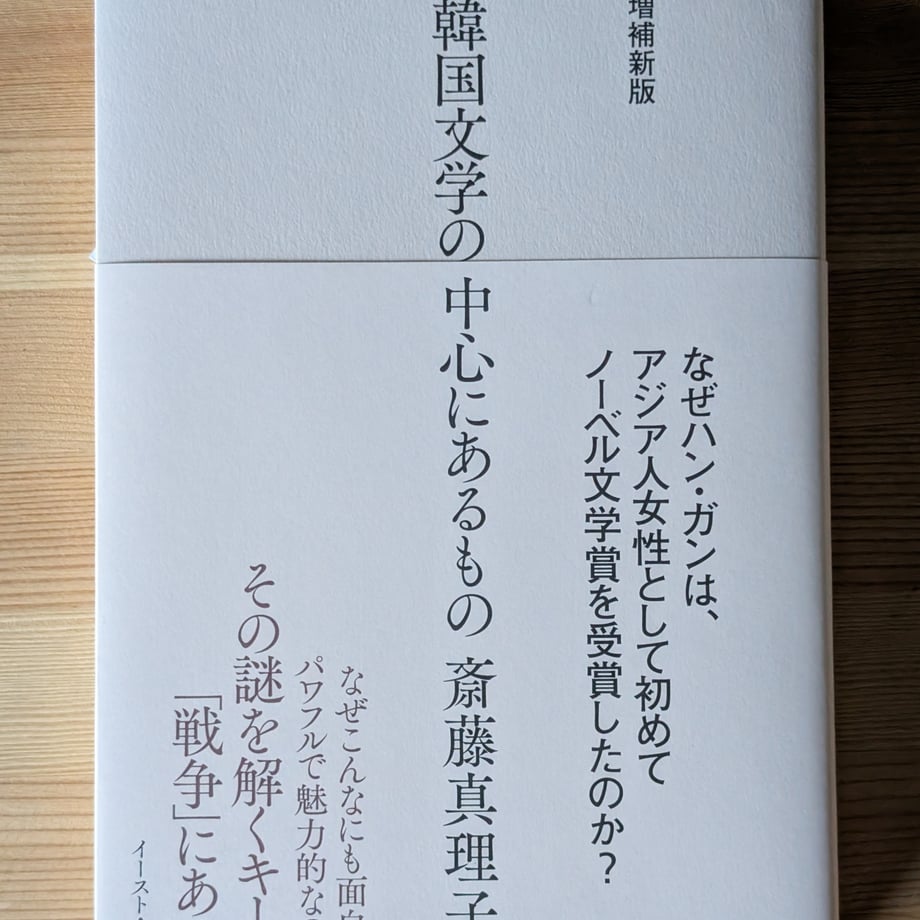 増補新版
韓国文学の中心にあるもの 斎藤真理子
なぜハン・ガンは、
アジア人女性として初めて
ノーベル文学賞を受賞したのか?
なぜこんなにも面白
パワフルで魅力的な
その謎を解くキー
「戦争」にあ
イースト・